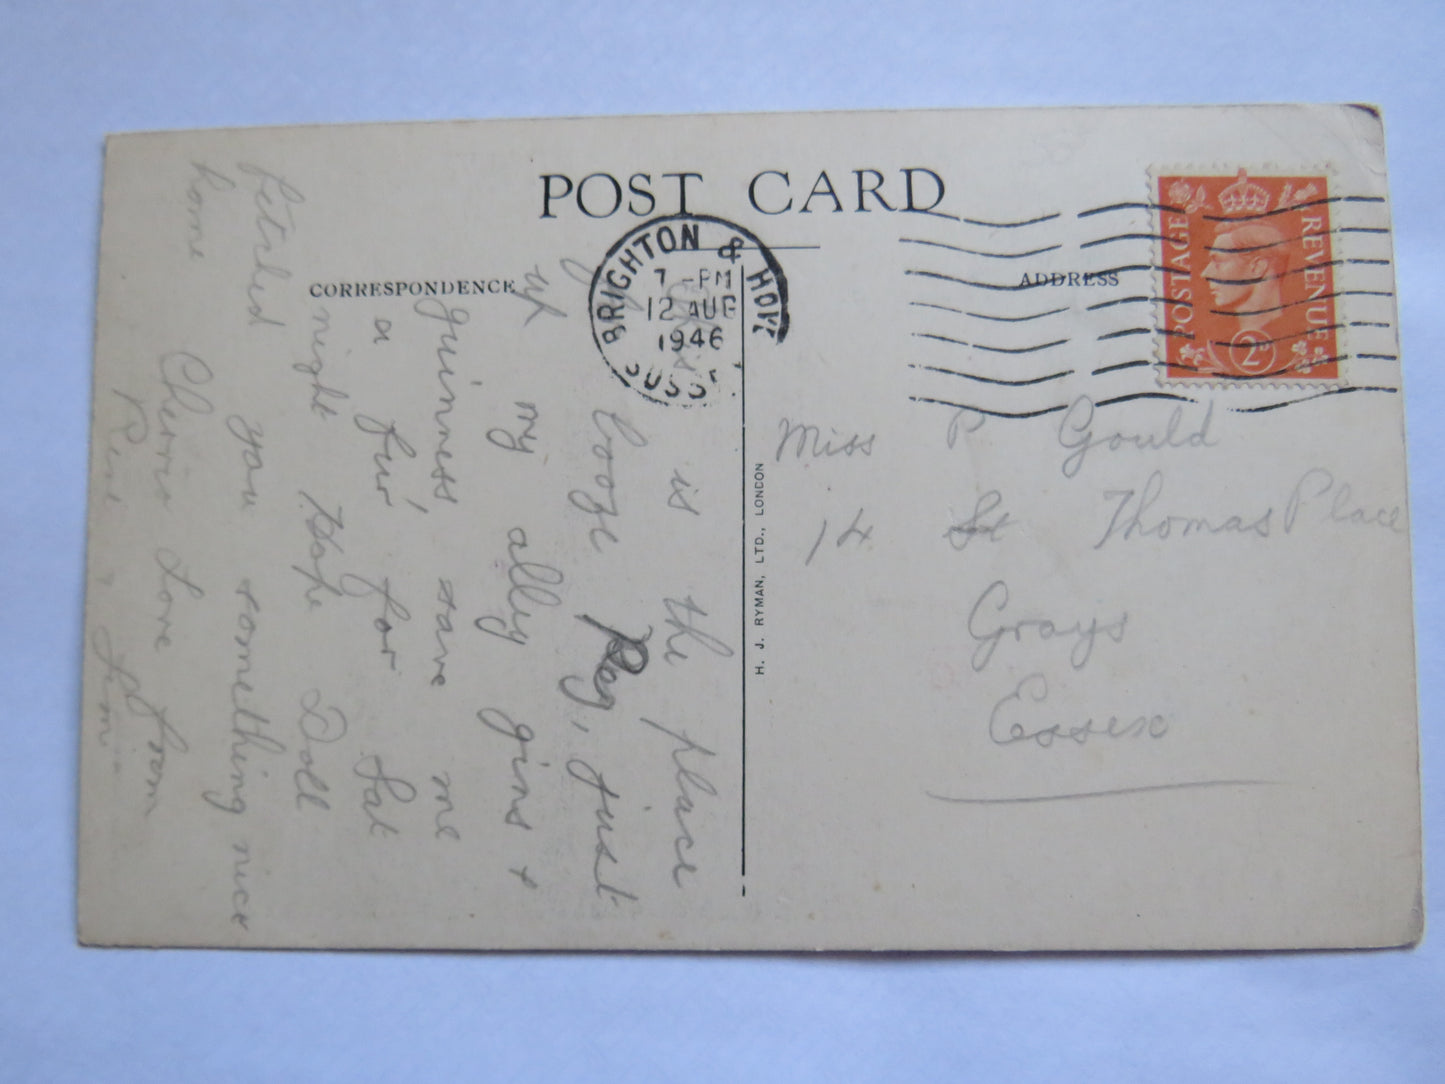 POST CARD
CORRESPONDENCE
ADDRESS
BRIGHTON & HOVE
7 - PM
12 AUG
1946
SUSSEX
POSTAGE
REVENUE
2D
H. J. RYMAN, LTD., LONDON
Miss P Gould
14 St Thomas Place
Grays
Essex
This is the place
for booze Peg, just
up my alley gins +
guinness, save me
a few for Sat
night Hope Doll
fetched you something nice
home Cherrio Love from
Rene + Jim